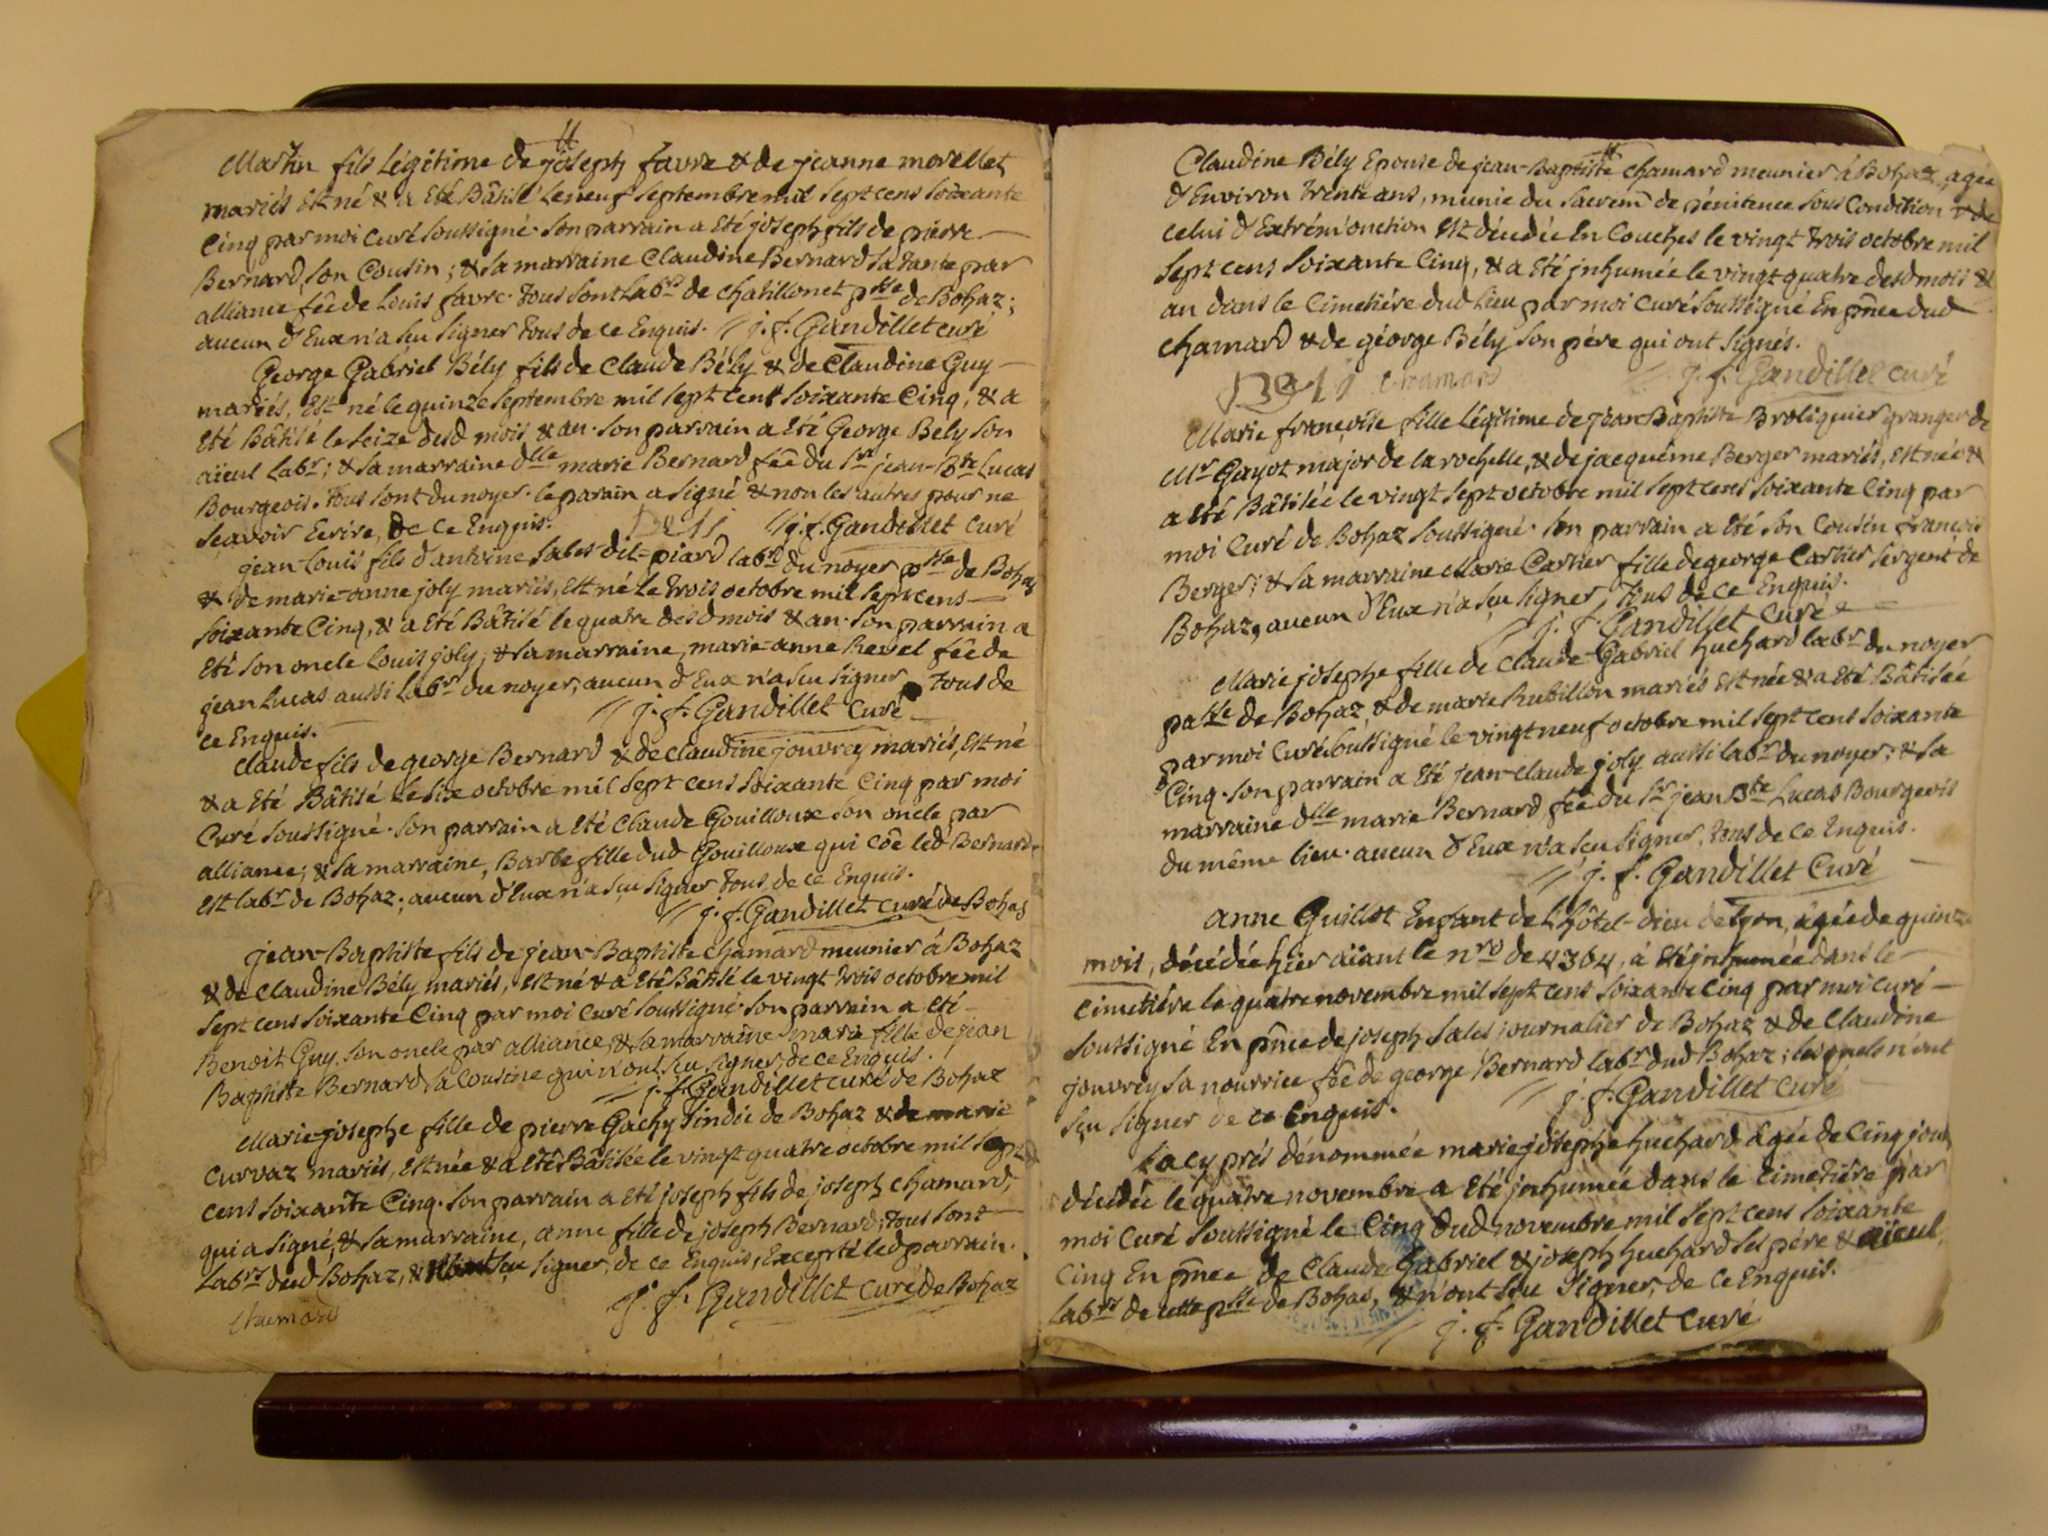 Martin fils Légitime de joseph favre & de jeanne morellet
mariés Est né & a Eté Bâtisé Le neuf septembre mil sept cens soixante
Cinq par moi curé soussigné. son parrain a Eté joseph fils de pierre
Bernard, son Cousin; & sa marraine Claudine Bernard sa tante par
alliance fẽe de Louis favre. tous sont Labrs de chatillonet psse de Bohaz;
aucun d'Eux n'a sçu signer tous de ce Enquis. // j. f. Gandillet curé
George Gabriel Bély fils de Claude Bély & de Claudine Guy
mariés, Est né le quinze septembre mil sept cent soixante Cinq, & a
Eté Bâtisé le seize desd mois & an. son parrain a Eté George Bely son
aïeul Labr; & sa marraine dlle marie Bernard fẽe du sr jean-Bte Lucas
Bourgeois. tous sont du noyer. le parain a signé & non les autres pour ne
sçavoir Ecrire, de ce Enquis. Beli //j. f. Gandillet Curé
jean Louis fils d'antoine sales dit-piard labr du noyer psse de Bohaz
& de marie-anne joly mariés, Est né Le trois octobre mil sept cens
soixante Cinq, & a Eté Bâtisé le quatre desd mois & an. son parrain a
Eté son oncle Louis joly; & sa marraine, marie-anne Revel fẽe de
jean Lucas aussi Labr du noyer; aucun d'Eux n'a sçu signer tous de
ce Enquis. // j. f. Gandillet Curé
Claude fils de george Bernard & de claudine jouvrey mariés, Est né
& a Eté Bâtisé Le six octobre mil sept cens soixante Cinq par moi
Curé soussigné. son parrain a Eté Claude Gouilloux son oncle par
alliance; & sa marraine, Barbe fille dud Gouilloux qui cõe led Bernard
Est labr de Bohaz; aucun d'Eux n'a sçu signer tous de ce Enquis.
// j. f. Gandillet curé de Bohas
jean-Baptiste fils de jean-Baptiste chamard meunier à Bohaz
& de Claudine Bély mariés, Est né & a Eté Bâtisé le vingt trois octobre mil
sept cens soixante Cinq par moi Curé soussigné. son parrain a Eté
Benoit Guy, son oncle par alliance, & sa marraine marie fille de jean
Baptiste Bernard sa Cousine qui n'ont sçu signer, de ce Enquis.
// j. f. Gandillet curé de Bohaz
Marie-josephe fille de pierre Gachy sindic de Bohaz & de marie
Curvaz mariés, Est née & a Eté Bâtisée le vingt quatre octobre mil sept
cens soixante Cinq. son parrain a Eté joseph fils de joseph Chamard,
qui a signé, & sa marraine, anne fille de joseph Bernard; tous sont
Labrs dud Bohaz, & n'ont sçu signer, de ce Enquis, Excepté led parrain.
j. f. Gandillet curé de Bohaz
Chamard
Claudine Bély Epouse de jean-Baptiste chamard meunier à Bohaz, agée
d'Environ trente ans, munie du sacrem̃ de pénitence sous Condition & de
celui d'Extrém'onction Est décédée En Couches le vingt trois octobre mil
sept cens soixante Cinq, & a Eté jnhumée le vingt quatre desd mois &
an dans le Cimetiére dud Lieu par moi Curé soussigné En pñce dud
chamard & de géorge Bély son pére qui ont signés.
Beli Chamard // j. f. Gandillet curé
Marie françoise fille Légitime de jean Baptiste Broliquier granger de
Mr Gayot major de la rochelle, & de jacquême Berger mariés, Est née &
a Eté Bâtisée le vingt sept octobre mil sept cens soixante Cinq par
moi Curé de Bohaz soussigné. son parrain a Eté son Cousin françois
Berger; & sa marraine Marie Cartier fille de george Cartier sergent de
Bohaz, aucun d'Eux n'a sçu signer tous de ce Enquis.
// j. f. Gandillet Curé
Marie josephe fille de Claude-Gabriel huchard labr du noyer
psse de Bohaz & de marie Rubillon mariés Est née & a Eté Bâtisée
par moi Curé soussigné le vingt neuf octobre mil sept cens soixante
Cinq. son parrain a Eté jean-claude joly aussi labr du noyer; & sa
marraine dlle marie Bernard fẽe du sr jean Bte Lucas Bourgeois
du même lieu. aucun d'Eux n'a sçu signer, tous de ce Enquis.
// j. f. Gandillet Curé
anne Guillot Enfant de L'hôtel-dieu de Lyon, agée de quinze
mois, décédée hier aïant le nro de 4364, a Eté jnhumée dans le
Cimetiére le quatre novembre mil sept cens soixante Cinq par moi curé
soussigné En pñce de joseph sales journalier de Bohaz & de Claudine
jouvrey sa nourrice fẽe de george Bernard labr dud Bohaz; lesquels n'ont
sçu signer de ce Enquis. // j. f. Gandillet Curé
La cy prés dénommée marie josephe huchard âgée de Cinq jours
décédée le quatre novembre a Eté jnhumée dans le Cimetiére par
moi Curé soussigné le Cinq dud novembre mil sept cens soixante
Cinq En pñce de Claude Gabriel & joseph huchard ses pére & aïeul,
labrs de cette psse de Bohas, & n'ont sçu signer, de ce Enquis.
// j. f. Gandillet Curé